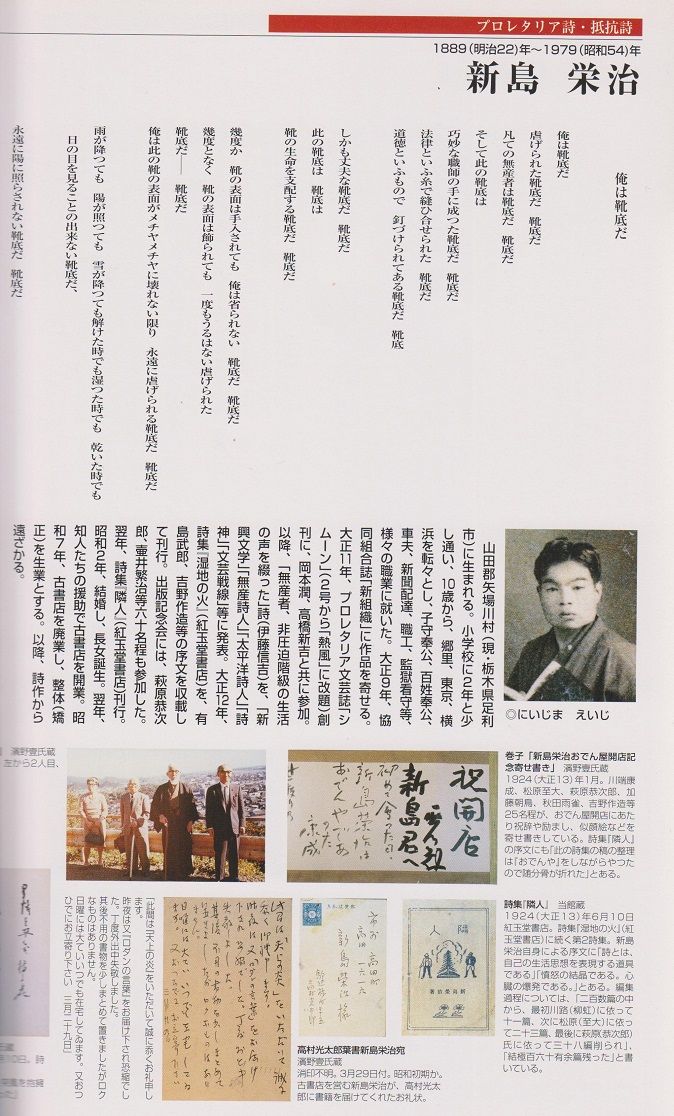 プロレタリア詩・抵抗詩
1889(明治22)年～1979(昭和54)年
新島 栄治
俺は靴底だ
俺は靴底だ
虐げられた靴底だ 靴底だ
凡ての無産者は靴底だ 靴底だ
そして此の靴底は
巧妙な職師の手に成つた靴底だ 靴底だ
法律といふ糸で縫ひ合せられた 靴底だ
道徳といふもので 釘づけられてある靴底だ 靴底
しかも丈夫な靴底だ 靴底だ
此の靴底は 靴底は
靴の生命を支配する靴底だ 靴底だ
幾度か 靴の表面は手入されても 俺は省られない 靴底だ 靴底だ
幾度となく 靴の表面は飾られても 一度もうるはない虐げられた
靴底だ── 靴底だ
俺は此の靴の表面がメチヤメチヤに壊れない限り 永遠に虐げられる靴底だ 靴底だ
雨が降つても 陽が照つても 雪が降つても解けた時でも湿つた時でも 乾いた時でも
日の目を見ることの出来ない靴底だ、
永遠に陽に照らされない靴底だ 靴底だ
◎にいじま えいじ
山田郡矢場川村(現・栃木県足利
市)に生まれる。小学校に2年と少
し通い、10歳から、郷里、東京、横
浜を転々とし、子守奉公、百姓奉公、
車夫、新聞配達、職工、監獄看守等、
様々の職業に就いた。大正9年、協
同組合誌「新組織」に作品を寄せる。
大正11年、プロレタリア文芸誌「シ
ムーン」(2号から「熱風」に改題)創
刊に、岡本潤、高橋新吉と共に参加。
以降、「無産者、非圧迫階級の生活
の声を綴った」詩(伊藤信吉)を、「新
興文学」「無産詩人」「太平洋詩人」「詩
神」「文芸戦線」等に発表。大正12年、
詩集『湿地の火』(紅玉堂書店)を、有
島武郎、吉野作造等の序文を収載し
て刊行。出版記念会には、萩原恭次
郎、壷井繁治等六十名程も参加した。
翌年、詩集『隣人』(紅玉堂書店)刊行。
昭和2年、結婚し、長女誕生。翌年、
知人たちの援助で古書店を開業。昭
和7年、古書店を廃業し、整体(矯
正)を生業とする。以降、詩作から
遠ざかる。
巻子「新島栄治おでん屋開店記
念寄せ書き」 濱野壹氏蔵
1924(大正13)年1月。川端康
成、松原至大、萩原恭次郎、加
藤朝鳥、秋田雨雀、吉野作造等
25名程が、おでん屋開店にあた
り祝辞や励まし、似顔絵などを
寄せ書きしている。詩集『隣人』
の序文にも「此の詩集の稿の整理
は「おでんや」をしながらやつた
ので随分骨が折れた」とある。
祝開店
新島君へ
初めて会つた日
新島栄治は
おでんやであ
つた
康成
濱野壹氏蔵
左から2人目、
詩集『隣人』 当館蔵
1924(大正13)年6月10日
紅玉堂書店。詩集『湿地の火』(紅
玉堂書店)に続く第2詩集。新島
栄治自身による序文に「詩とは、
自己の生活思想を表現する道具
である」「憤怒の結晶である。心
臓の爆発である。」とある。編集
過程については、「二百数篇の中
から、最初川路(柳虹)に依って
十一篇、次に松原(至大)に依っ
て二十三篇、最後に萩原(恭次郎)
氏に依って三十八編削られ」、
「結極百六十有余篇残った」と書
いている。
隣人
新島栄治著
高田町
新島栄治様
高村光太郎葉書新島栄治宛
濱野壹氏蔵
消印不明。3月29日付。昭和初期か。
古書店を営む新島栄治が、高村光太
郎に書籍を届けてくれたお礼状。
「此間は「天上の炎」をいただいて誠に忝くお礼申し
ます。
昨夜は又「ロダンの言葉」をお届け下され恐縮でし
た。丁度外出中失敬しました。
其後不用の書物を少しまとめて置きましたがロク
なものはありません。
日曜には大ていいつでも在宅してゐます。又おつ
ひでにお立寄り下さい 三月二十九日」